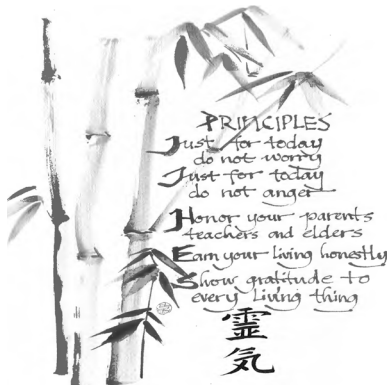 PRINCIPLES
Just for today
do not worry
Just for today
do not anger
Honor your parents
teachers and elders
Earn your living honestly
Show gratitude to
every living thing
霊
気